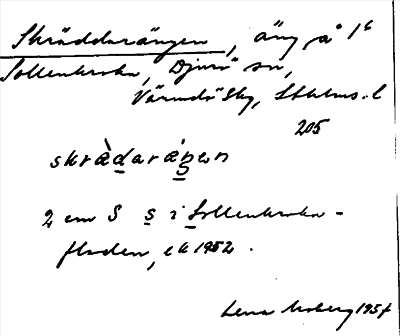 Skräddarängen, äng å 1⁶
Sollenkroka, Djurö sn,
Värmdö skg, Sthlms. l
205
skrædaræŋen
2 cm S s i Sollenkroka-
fladen, ek 1952.
Lena Moberg 1957